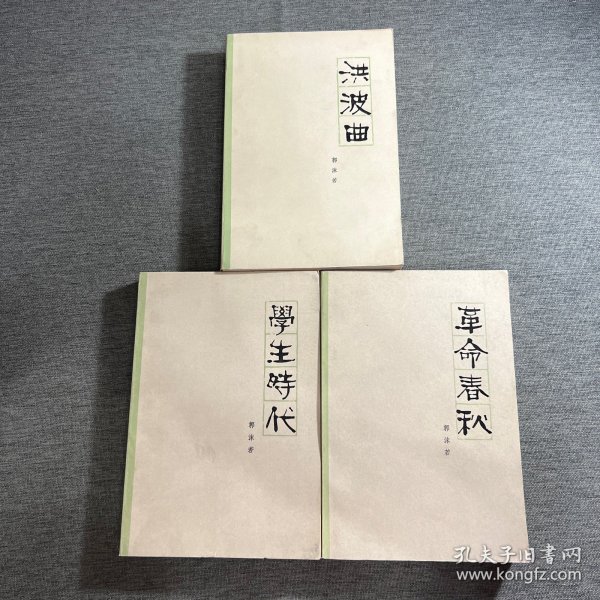 洪波曲
郭沫若
學生時代
郭沫若
革命春秋
郭沫若
孔夫子旧书网
www.kongfz.com